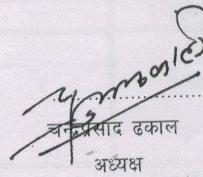 चन्द्रप्रसाद ढकाल
अध्यक्ष